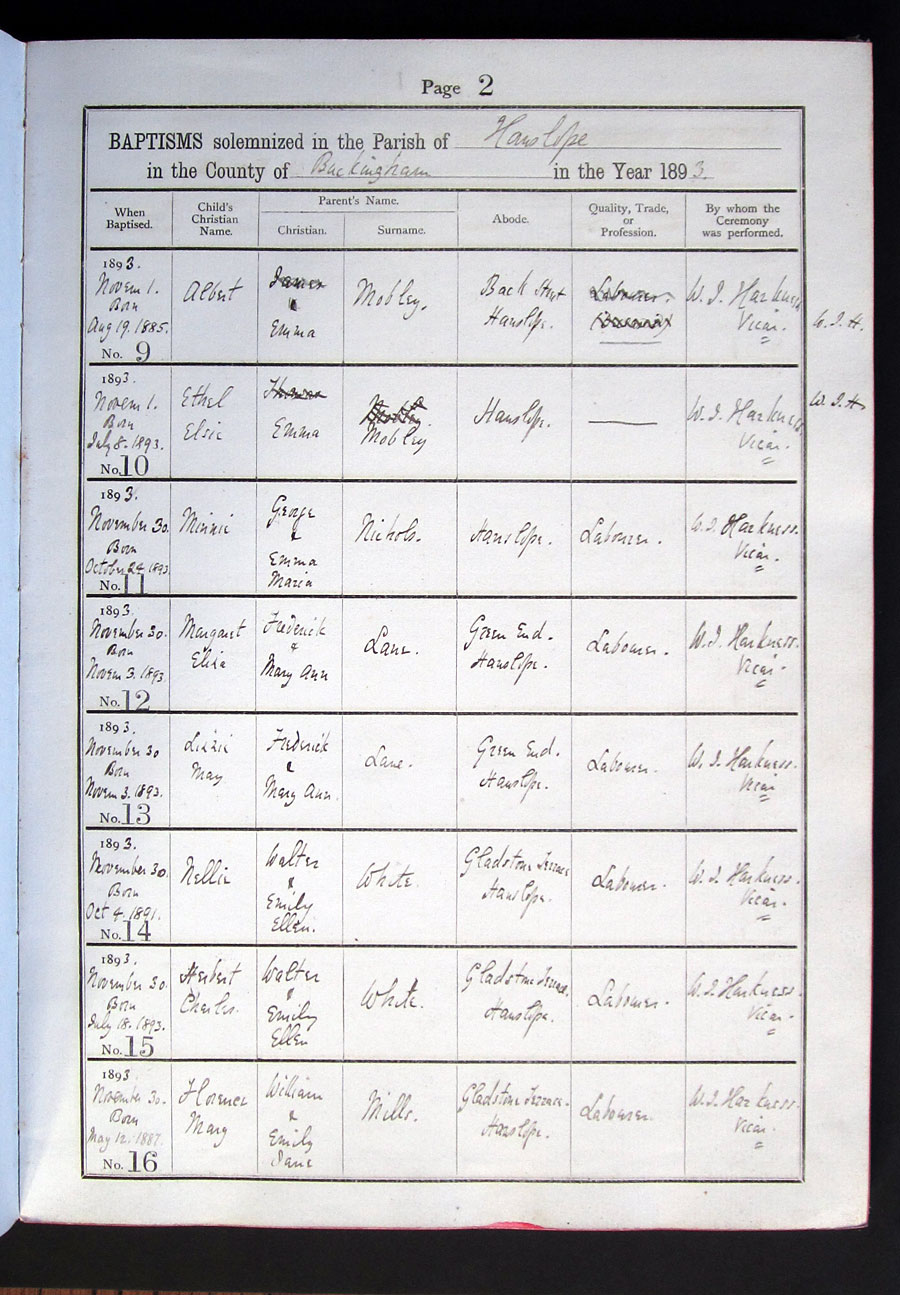 Page 2
BAPTISMS solemnized in the Parish of Hanslope
in the County of Buckingham in the Year 1893.
When Baptised.
Child's Christian Name.
Parent's Name.
Christian.
Surname.
Abode.
Quality, Trade, or Profession.
By whom the Ceremony was performed.
1893.
Novem 1.
Born
Aug 19. 1885.
No. 9
Albert
James
&
Emma
Mobley.
Back Street
Hanslope.
Labourer.
W. J. Harkness
Vicar.
W. J. H.
1893.
Novem 1.
Born
July 8. 1893.
No. 10
Ethel
Elsie
Thomas
Emma
Mobley
Hanslope.
W. J. Harkness
Vicar.
W. J. H.
1893.
November 30.
Born
October 24. 1893.
No. 11
Minnie
George
&
Emma
Maria
Nichols.
Hanslope.
Labourer.
W. J. Harkness.
Vicar.
1893.
November 30.
Born
Novem 3. 1893.
No. 12
Margaret
Eliza
Frederick
&
Mary Ann
Lane.
Green End.
Hanslope.
Labourer.
W. J. Harkness.
Vicar.
1893.
November 30
Born
Novem 3. 1893.
No. 13
Lizzie
May
Frederick
&
Mary Ann.
Lane.
Green End.
Hanslope.
Labourer.
W. J. Harkness.
Vicar
1893.
November 30.
Born
Oct 4. 1891.
No. 14
Nellie
Walter
&
Emily
Ellen.
White.
Gladstone Terrace
Hanslope.
Labourer.
W. J. Harkness.
Vicar.
1893.
November 30.
Born
July 18. 1893.
No. 15
Herbert
Charles.
Walter
&
Emily
Ellen
White.
Gladstone Terrace.
Hanslope.
Labourer.
W. J. Harkness.
Vicar.
1893
November 30.
Born
May 12. 1887.
No. 16
Florence
Mary
William
&
Emily
Jane
Mills.
Gladstone Terrace.
Hanslope.
Labourer.
W. J. Harkness.
Vicar.